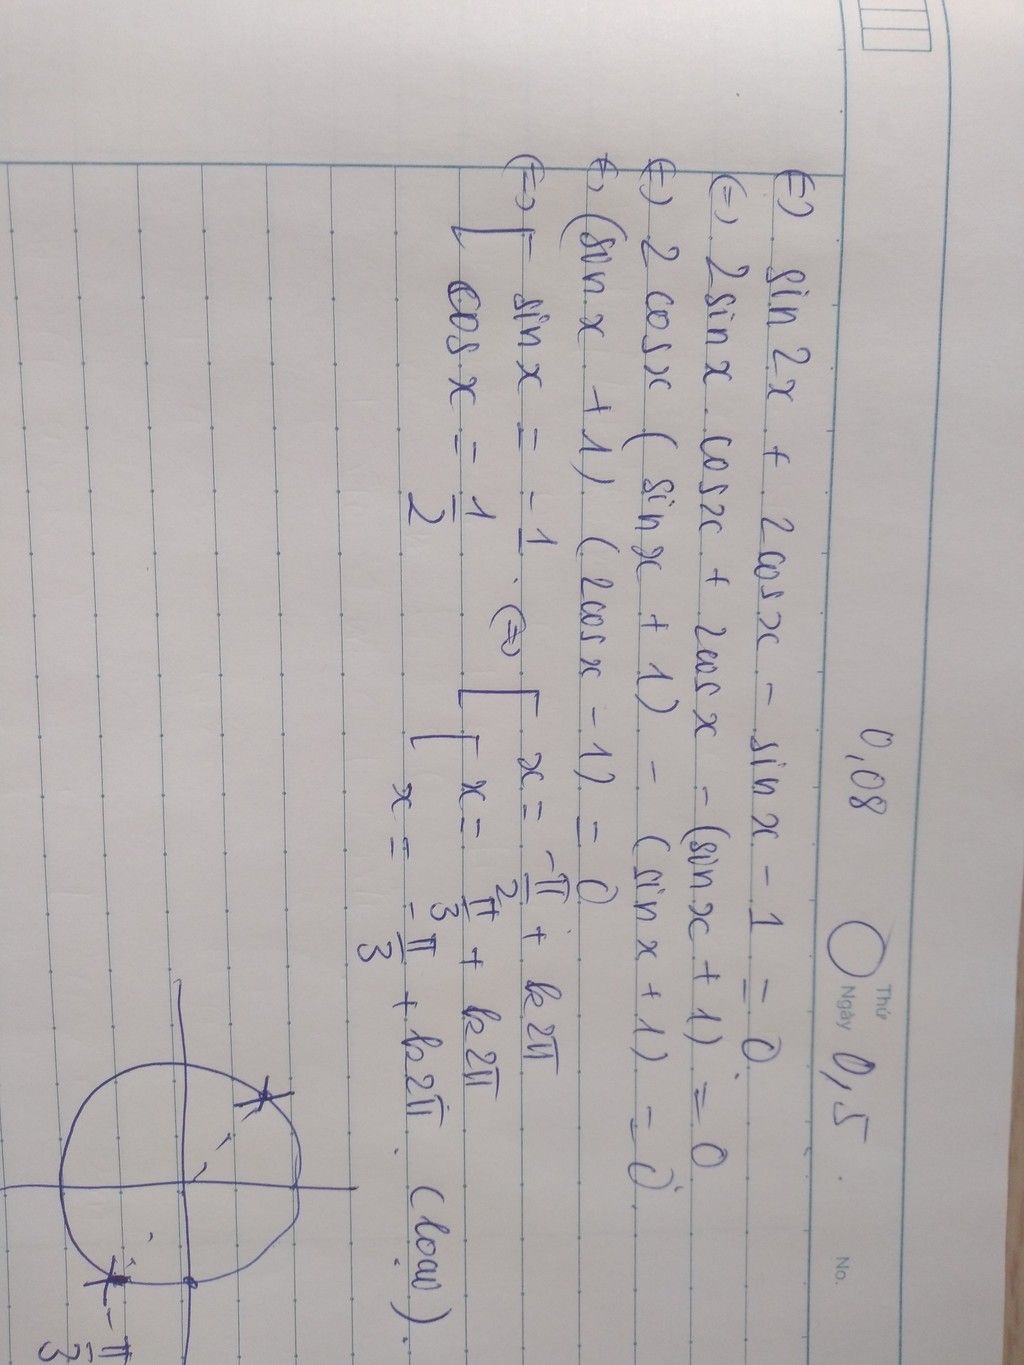 0,08 0,5
Thứ
Ngày
No.
(=) sin2x + 2cosx - sinx - 1 = 0
(=) 2sinx.cosx + 2cosx - (sinx + 1) = 0
(=) 2cosx (sinx + 1) - (sinx + 1) = 0
(=) (sinx + 1) (2cosx - 1) = 0
(=) [ sinx = -1 (=) [ x = -π/2 + k2π
cosx = 1/2 [ x = π/3 + k2π
x = -π/3 + k2π (loại).
-π/3